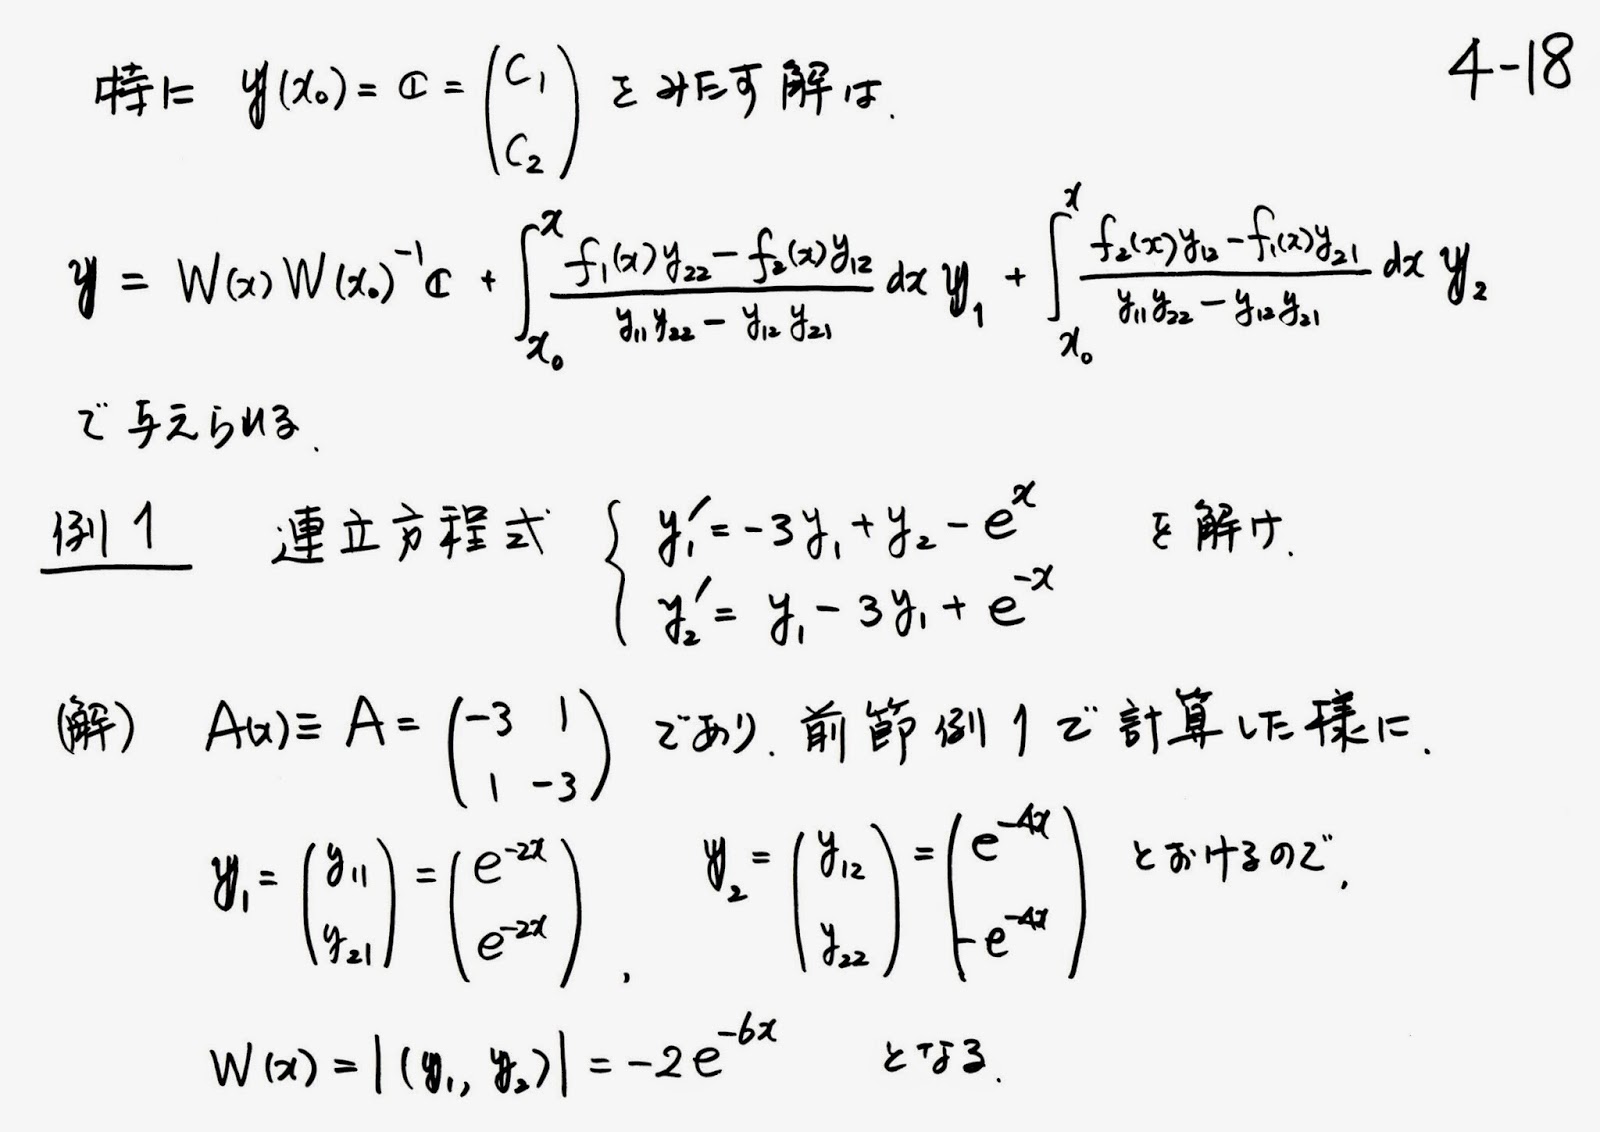 4-18
特に 𝕪(x₀) = ℂ = (C₁ C₂) をみたす解は.
𝕪 = W(x) W(x₀)⁻¹ ℂ + ∫_{x₀}^{x} (f₁(x)y₂₂ − f₂(x)y₁₂)/(y₁₁y₂₂ − y₁₂y₂₁) dx 𝕪₁ + ∫_{x₀}^{x} (f₂(x)y₁₂ − f₁(x)y₂₁)/(y₁₁y₂₂ − y₁₂y₂₁) dx 𝕪₂
で与えられる.
例1 連立方程式 { y₁′ = −3y₁ + y₂ − eˣ を解け.
y₂′ = y₁ − 3y₁ + e⁻ˣ
(解) A(x) ≡ A = (−3 1 1 −3) であり. 前節例1で計算した様に.
𝕪₁ = (y₁₁ y₂₁) = (e⁻²ˣ e⁻²ˣ), 𝕪₂ = (y₁₂ y₂₂) = (e⁻⁴ˣ −e⁻⁴ˣ) とおけるので,
W(x) = |(𝕪₁, 𝕪₂)| = −2e⁻⁶ˣ となる.